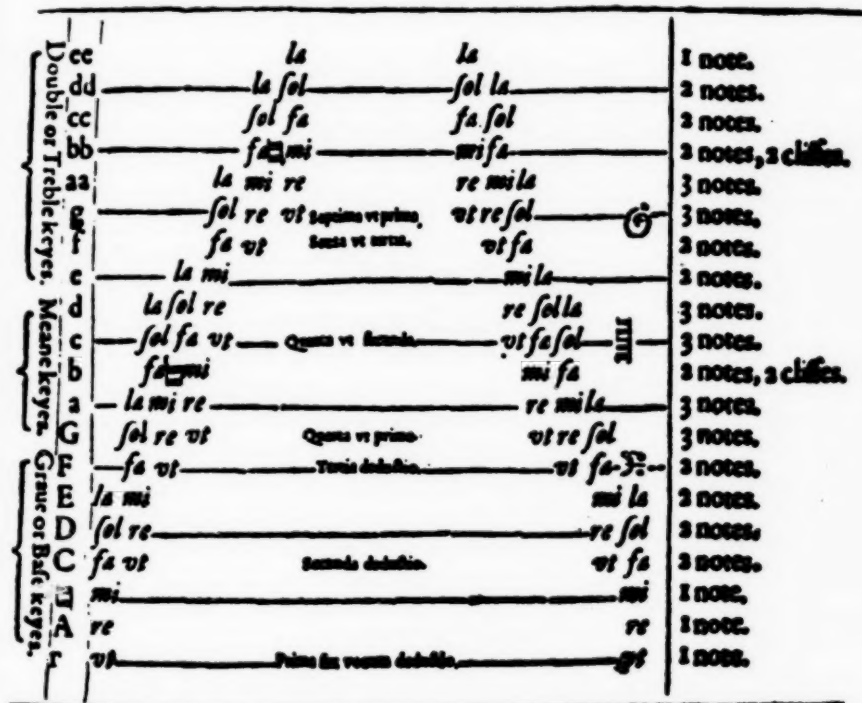 Double or Treble keyes.
Meane keyes.
Graue or Base keyes.
ee la la 1 note.
dd la ſol ſol la 2 notes.
cc ſol fa fa ſol 2 notes.
bb fa mi mi fa 2 notes, 2 cliffes.
aa la mi re re mi la 3 notes.
g ſol re vt Septima vt prima vt re ſol 3 notes.
f fa vt vt fa 2 notes.
e la mi mi la 2 notes.
d la ſol re re ſol la 3 notes.
c ſol fa vt vt fa ſol 3 notes.
b fa mi mi fa 2 notes, 2 cliffes.
a la mi re re mi la 3 notes.
G ſol re vt vt re ſol 3 notes.
F fa vt Tertia deductio. vt fa 2 notes.
E la mi mi la 2 notes.
D ſol re re ſol 2 notes.
C fa vt Secunda deductio. vt fa 2 notes.
mi mi 1 note.
A re re 1 note.
Γ vt Prima ſex vocum deductio. vt 1 note.